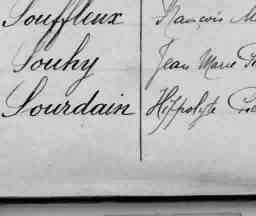 Souffleux François
Souhy Jean Marie
Sourdain Hippolyte